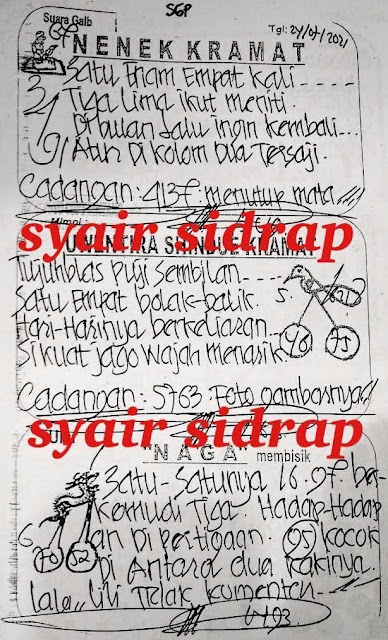 SGP
Suara Gaib
Tgl: 24/07/2021
NENEK KRAMAT
Satu Enam Empat Kali
Tiga Lima ikut meniti.
Di bulan lalu ingin kembali
Di kolom Dua Tersaji.
Cadangan: 4137. menutup mata
syair sidrap
KRAMAT
Tujuhblas Puji Sembilan
Satu Empat bolak-balik.
Hari-Harinya berkeliaran
Si kuat jago Wajah menarik
5.
75
Cadangan: 5763. Foto gambarnya
syair sidrap
"NAGA" membisik
Satu-Satunya 16.07. ber-
kemudi Tiga. Hadap-Hadap
an Di pertigaan. 95 kocok
6
70 52
Di Antara dua kakinya.
lala, lili Tidak kumenten